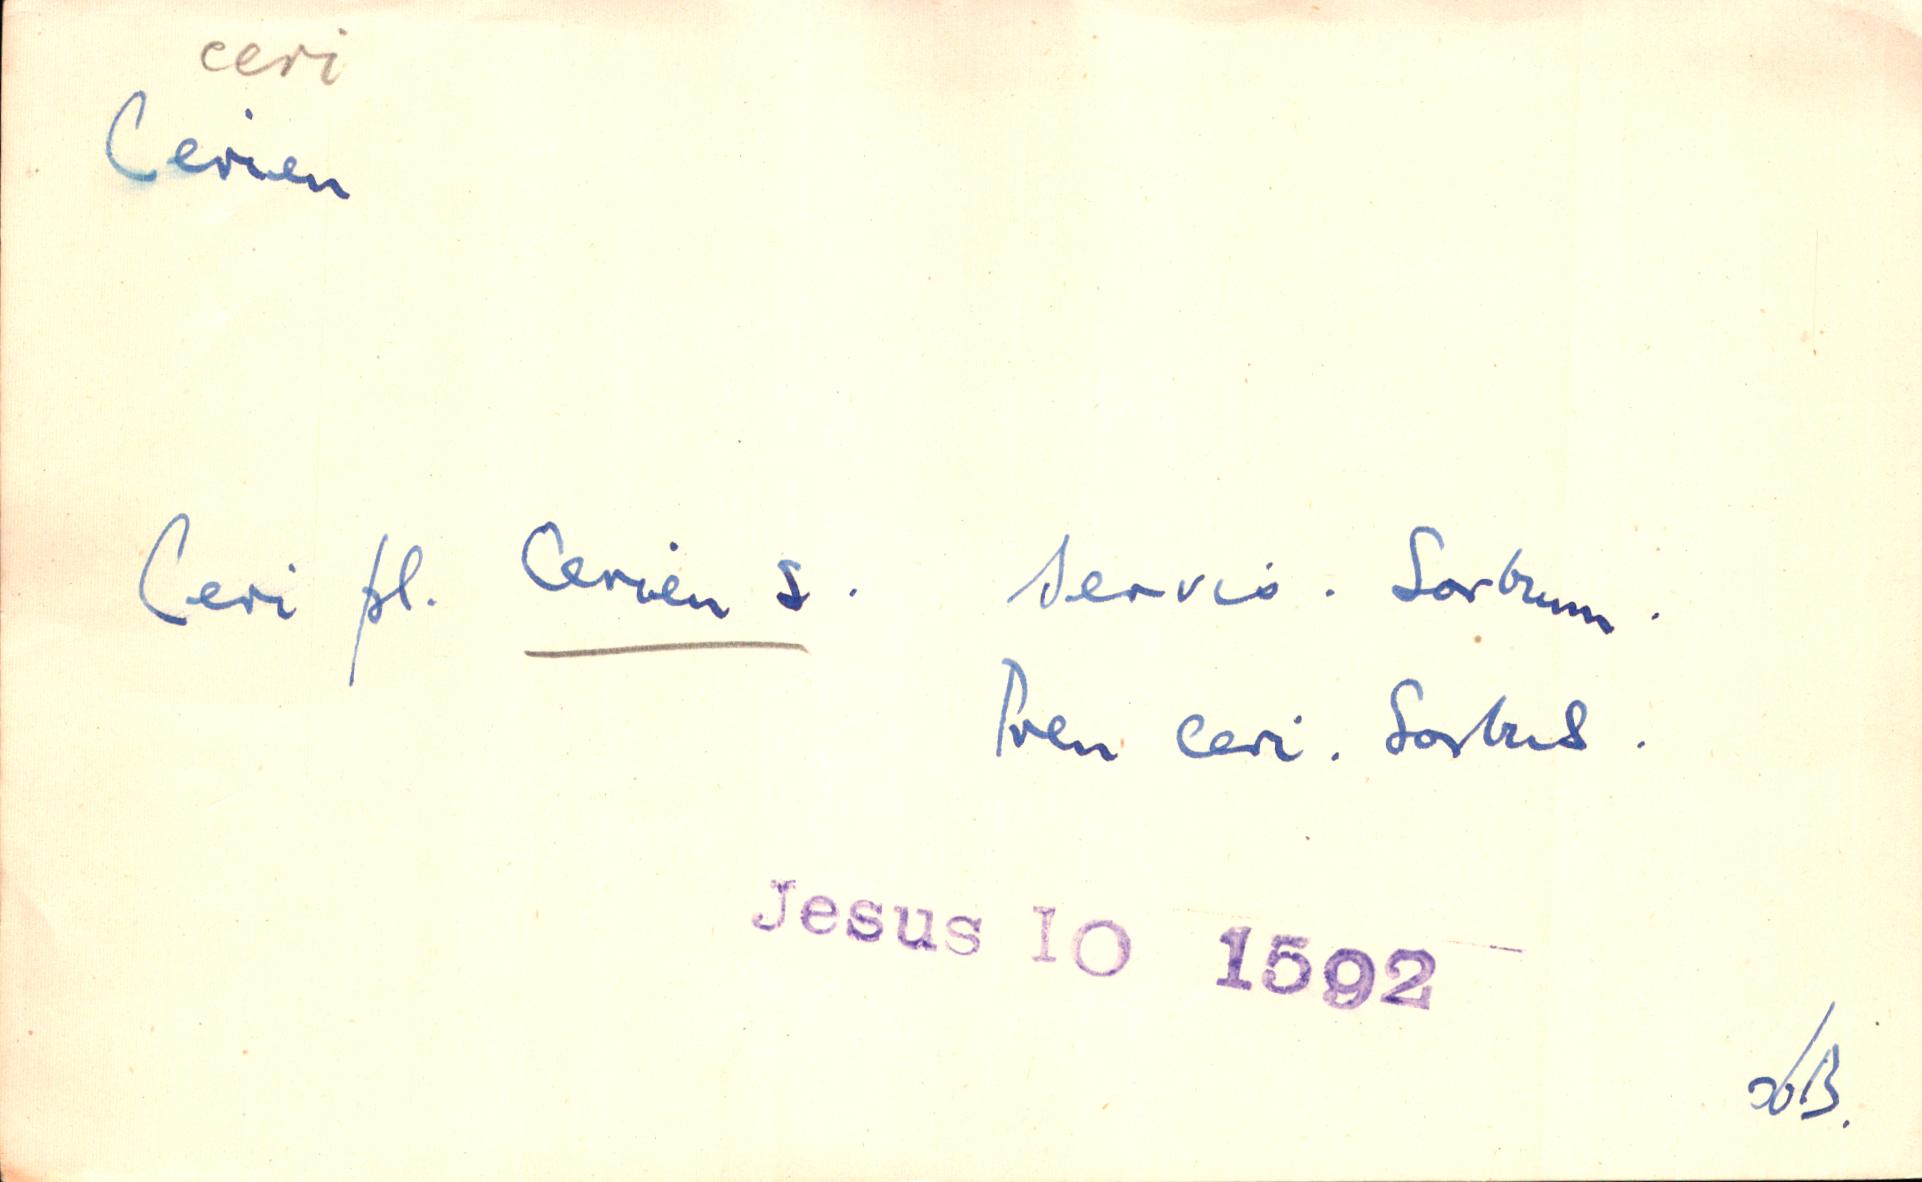 ceri
Cerien
Ceri pl. Cerien s. servis. Sorbum.
Pren ceri. Sorbus.
Jesus 10 1592